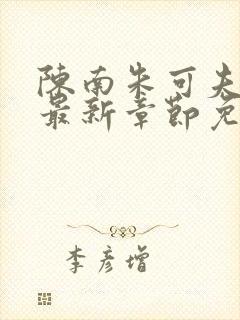 陈南朱可夫
最新章节免
李彦增